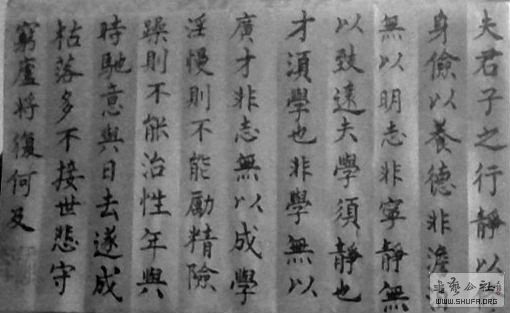 夫君子之行靜以
身儉以養德非澹
無以明志非寧靜無
以致遠夫學須靜也
才須學也非學無以
廣才非志無以成學
淫慢則不能勵精險
躁則不能治性年與
時馳意與日去遂成
枯落多不接世悲守
窮廬將復何及
公社
WWW.SHUFA.ORG